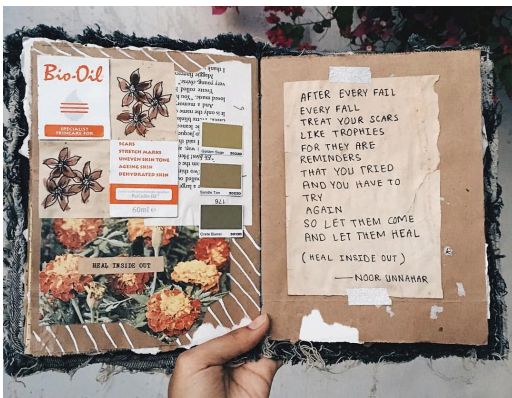 Bio-Oil
SPECIALIST
SKINCARE FOR
SCARS
STRETCH MARKS
UNEVEN SKIN TONE
AGEING SKIN
DEHYDRATED SKIN
60ml e
Golden Sage
Gondola Tan
176
Crete Barrel
HEAL INSIDE OUT
AFTER EVERY FAIL
EVERY FALL
TREAT YOUR SCARS
LIKE TROPHIES
FOR THEY ARE
REMINDERS
THAT YOU TRIED
AND YOU HAVE TO
TRY
AGAIN
SO LET THEM COME
AND LET THEM HEAL
(HEAL INSIDE OUT)
—NOOR UNNAHAR